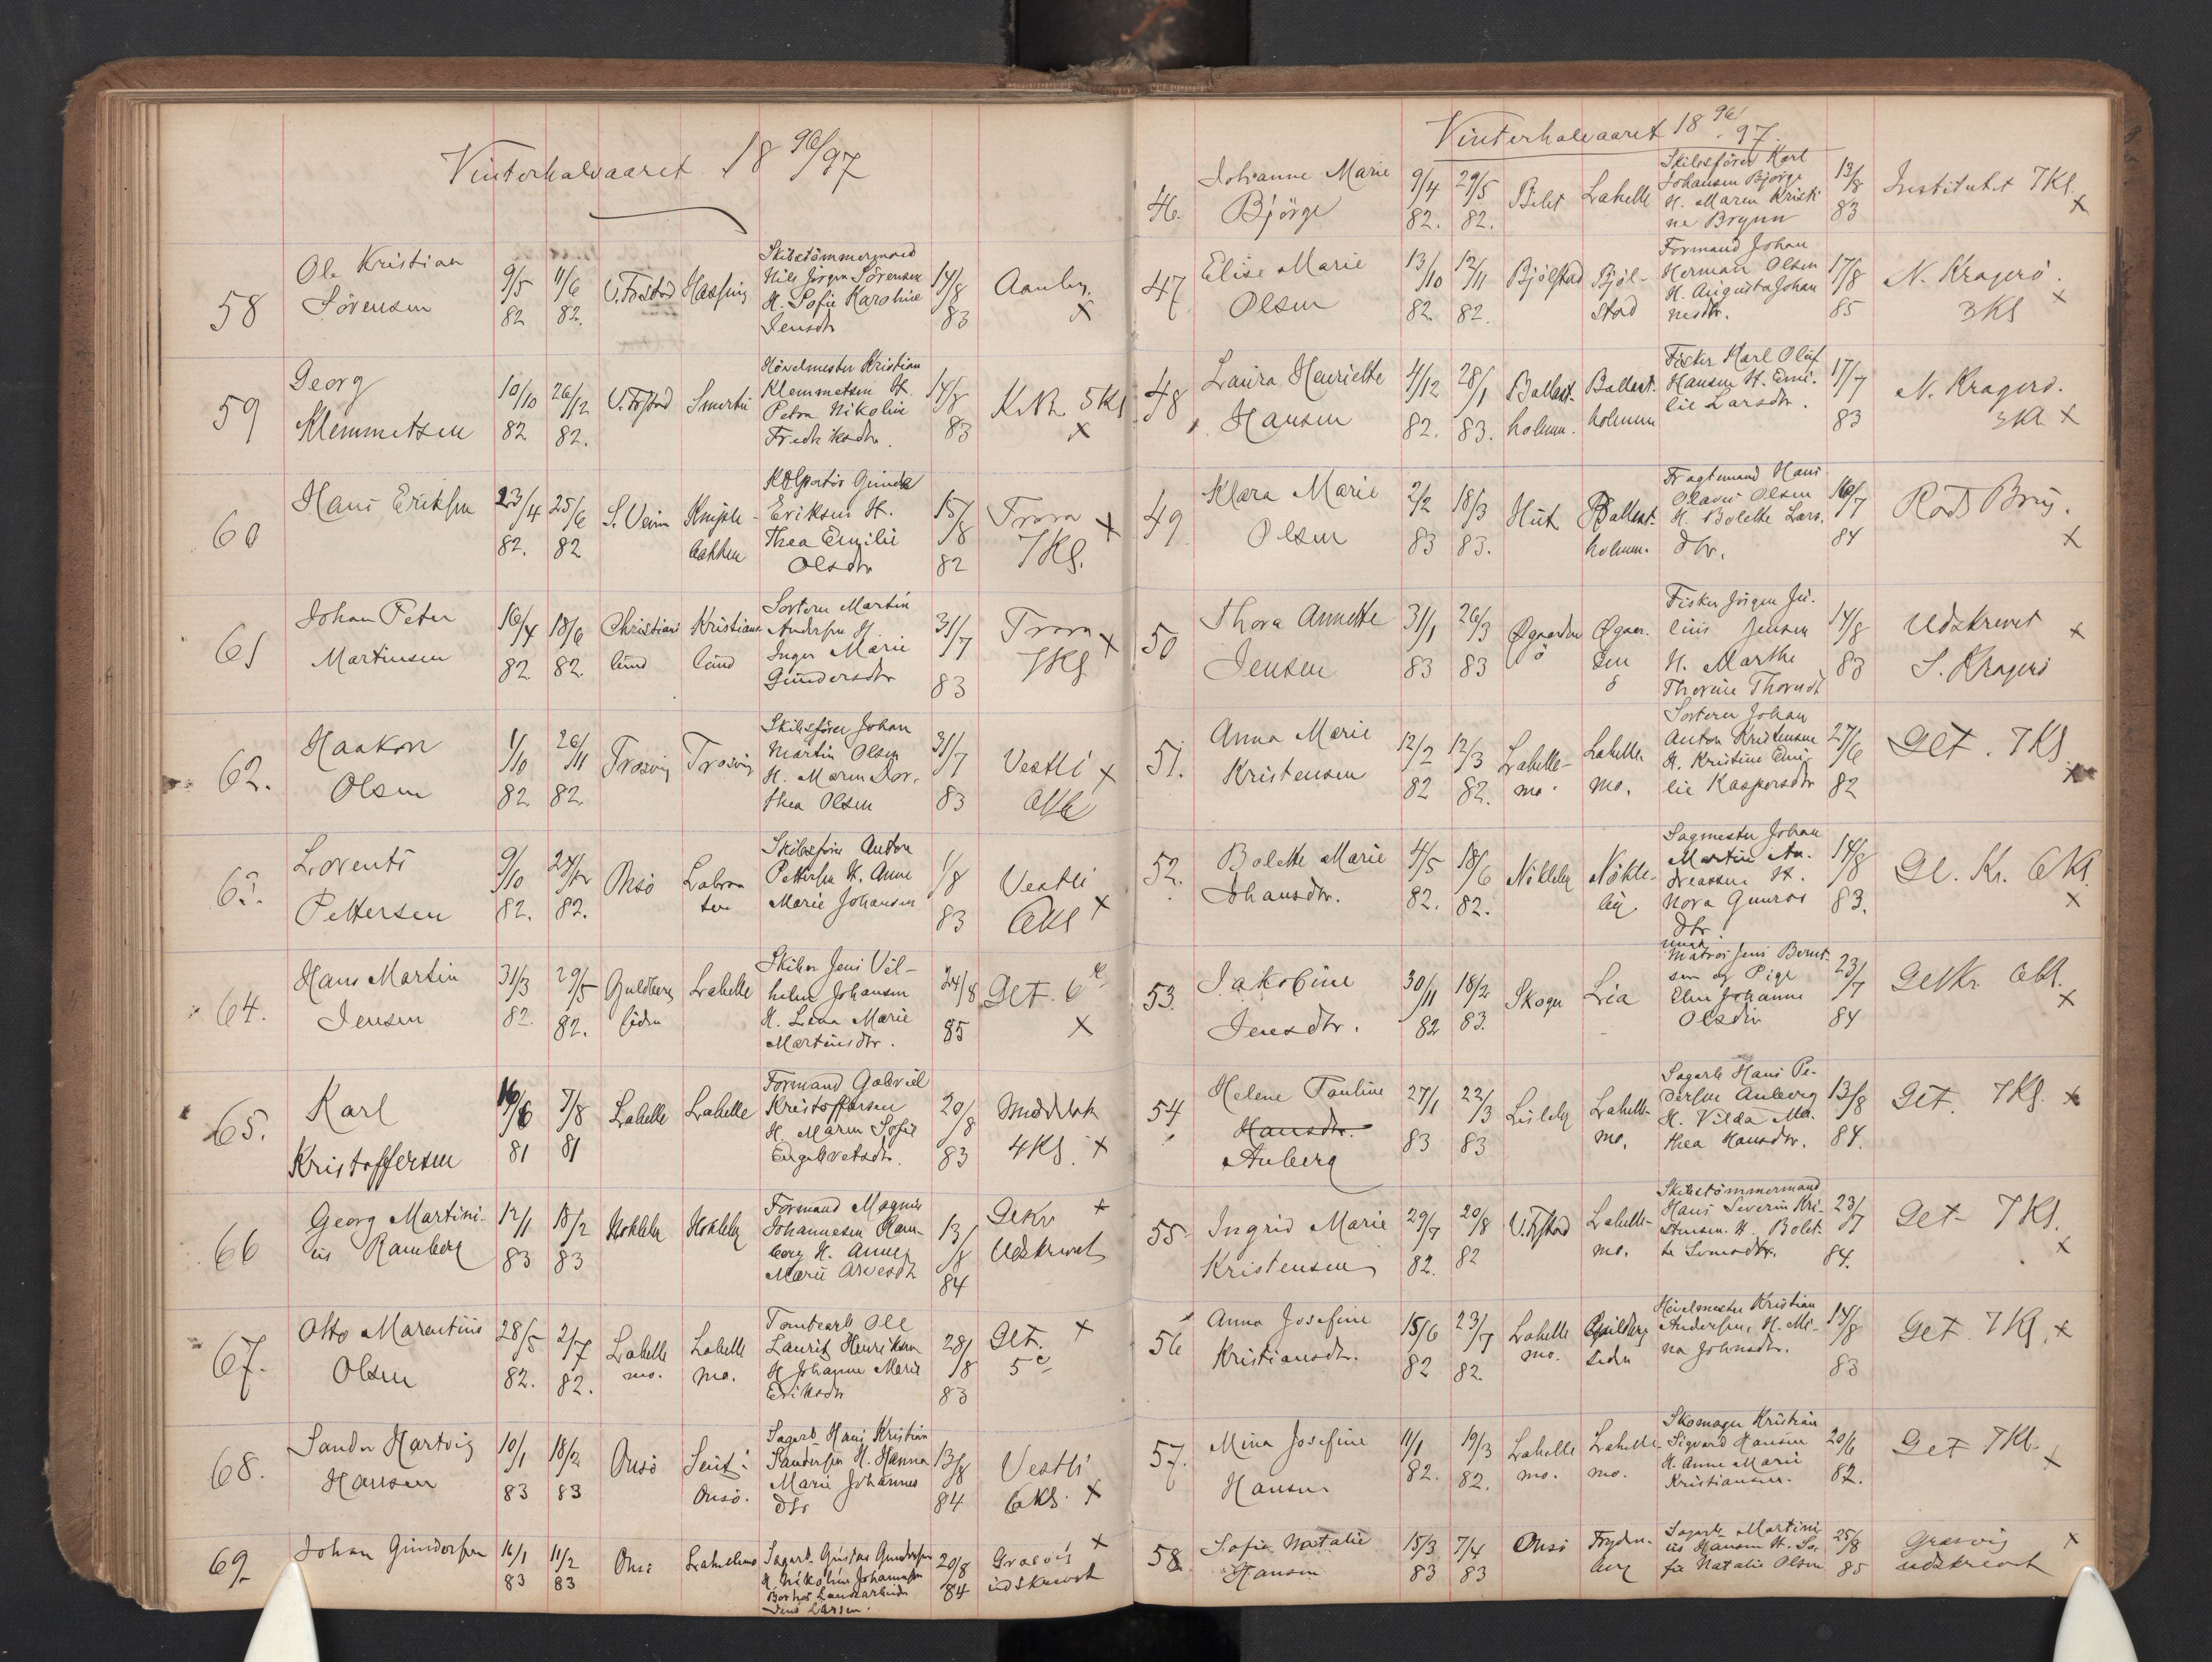 Vinterhalvaaret 18 96/97
58 Ole Kristian Sörensen 9/5 82 11/6 82. V. Fosstad Skibstömmermand Nils Jörgen Sörensen H. Sofie Karoline Jensdtr 14/8 83 X
59 Georg Klemmetsen 10/10 82 26/12 82. Hövelmester Kristian Klemmetsen H. Petra Nikoline Fredriksdtr. 14/8 83 5Kl X
60 Hans Eriksen 23/4 82. 25/6 82 Eriksen H. Thea Emilie Olsdtr 15/8 82 Trara 7Kl. X
61 Johan Peter Martinsen 16/4 82 18/6 82. Christians lund Kristians lund Sorterer Martin Andersen H. Inger Marie Gundersdtr 31/7 83 Trara 7Kl X
62. Haakon Olsen 1/10 82 26/11 82. Trosvig Trosvig Skibsförer Johan Martin Olsen H. Maren Dor- thea Olsen 31/7 83 Vestli X
63. Lorents Pettersen 9/10 82. 82. Onsö Skibsförer Anton Pettersen H. Anne Marie Johansen 1/8 83 Vestli 6Kl X
64. Hans Martin Jensen 31/3 82. 29/5 82. Guldberg siden Lahelle Jens Vil- helm Johansen H. Lena Marie Martinsdtr. 24/8 85 Get. 6 X
65. Karl Kristoffersen 16/6 81 7/8 81 Lahelle Lahelle Formand Gabriel Kristoffersen H. Maren Sofie Engebretsdtr. 20/8 83 4Kl. X
66 Georg Martini- us Ramberg 12/1 83 18/2 83 Formand Magnus Johannesen Ram- berg H. Anne Marie 13/8 84 Gekr Udskrevet X
67. Otto Marentius Olsen 28/5 82. 2/7 82. Lahelle mo. Lahelle mo. Tomtearb Ole Laurits Henriksen H Johanne Marie Eriksdtr 28/8 83 Get. X 5
68. Sander Hartvig Hansen 10/1 83 18/2 83 Onsö Onsö. Sagarb. Hans Kristian Sandersen H. Hanna Marie Johannes dtr 13/8 84 Vestli 6Kl. X
69. Johan Gundersen 16/1 83 11/2 83 Onsö Lahellemo Sagarb. Gustav Gundersen H. Nikoline Johannesen Jens Larsen. 20/8 84 Græsvig udskrevet X
Vinterhalvaaret 18 96/97.
46. Johanne Marie Björge 9/4 82. 29/5 82. Lahelle Skibsförer Karl Johansen Björge H. Maren Kristi ne Brynn 13/8 83 Institutet 7Kl. X
47 Elise Marie Olsen 13/10 82 12/11 82. Bjölstad Bjöl- stad Formand Johan Herman Olsen H. Augusta Johan nesdtr. 17/8 85 N. Kragerö. 3Kl X
48 Laura Henriette Hansen 4/12 82. 28/1 83. Ballast- holmen. Ballast- holmen Fisker Karl Oluf Hansen H. Emi- lie Larsdtr. 17/7 83 N. Kragerö. 3Kl X
49 Klara Marie Olsen 2/2 83 18/3 83. Ballast- holmen. Fragtemand Hans Olaus Olsen H. Bolette Lars- dtr. 16/7 84 Röds Brug. X
50 Thora Annette Jensen 31/1 83 26/3 83 Øgaarden ö Øgaar- den ö Fisker Jörgen Ju- lius Jensen H. Marthe Thorine 14/8 83 Udskrevet X S. Kragerö
51. Anna Marie Kristensen 12/2 82 12/3 82. Lahelle- mo. Lahelle- mo. Sorterer Johan Anton Kristensen H. Kristine Emi- lie Kaspersdtr 27/6 82 Get. 7Kl X
52. Bolette Marie Johansdtr. 4/5 82. 18/6 82. Nökleby Nökle- by. Sagmester Johan Martin An- dreassen H. Nora Gunros dtr. 14/8 83. Gl. Kr. 6Kl. X
53. Jakobine Jensdtr. 30/11 82 18/2 83. Skogen Lia Matros Jens Bernt- sen og Pige Elen Johanne Olsdtr 23/7 84 Gl Kr. 6Kl. X
54 Helene Pauline Hansdtr. Auberg 27/1 83 22/3 83 Lisleby Lahelle- mo. Sagarb Hans Pe- dersen Auberg H. Vilda Ma- thea Hansdtr. 13/8 84. Get. 7Kl. X
55 Ingrid Marie Kristensen 29/7 82. 20/8 82 V. Fosstad Lahelle- mo. Skibstömmermand Hans Severin Kri- stensen. H. Bolet- te 23/7 84. Get 7Kl. X
56 Anna Josefine Kristiansdtr. 15/6 82 23/7 82. Lahelle mo. Guldberg siden Hövelmester Kristian Andersen, H. Mi- na Johnsdtr. 14/8 83 Get. 7Kl. X
57. Mina Josefine Hansen 11/1 82. 19/3 82. Lahelle mo. Lahelle- mo. Skomager Kristian Sigvard Hansen H. Anne Marie Kristiansen. 20/6 82. Get 7Kl. X
58. Sofie Natalie Hansen 15/3 83 7/4 83 Onsö Fryden- berg Sagarb. Martini us Hansen H. So- fie Natalie Olsen 25/8 85 Græsvig udskrevet X